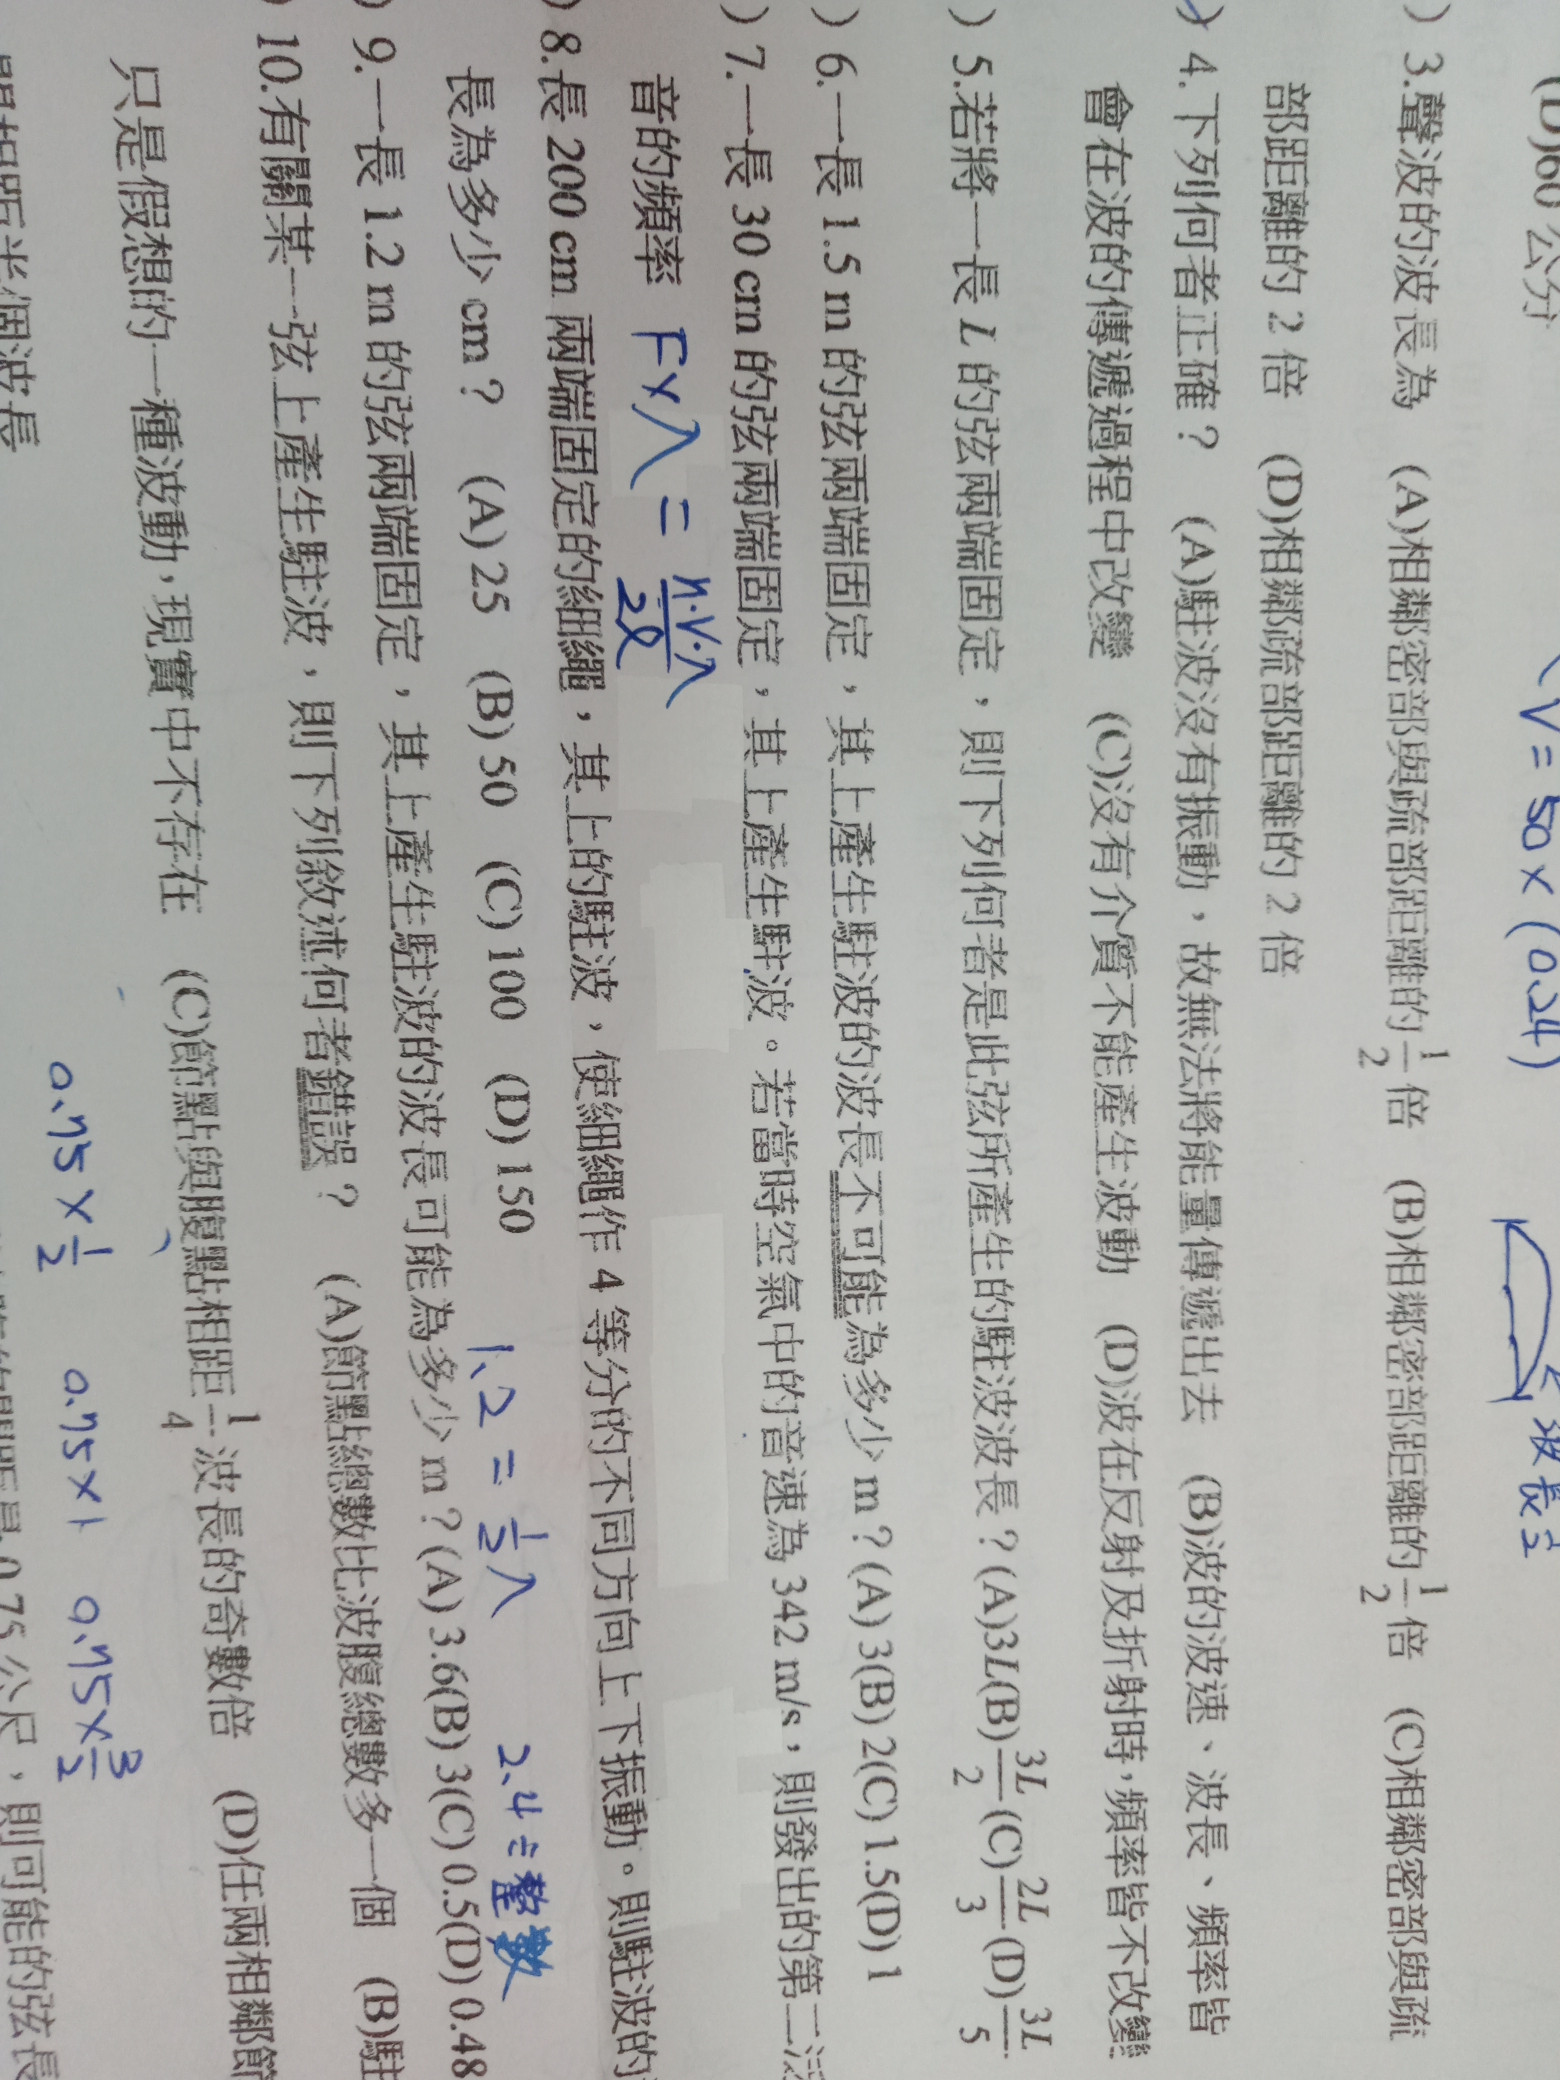 (D)60 公分
V = 50 × (0.24)
波長
) 3.聲波的波長為 (A)相鄰密部與疏部距離的1/2倍 (B)相鄰密部距離的1/2倍 (C)相鄰密部與疏
部距離的 2 倍 (D)相鄰疏部距離的 2 倍
) 4.下列何者正確? (A)駐波沒有振動,故無法將能量傳遞出去 (B)波的波速、波長、頻率皆
會在波的傳遞過程中改變 (C)沒有介質不能產生波動 (D)波在反射及折射時,頻率皆不改變
) 5.若將一長 L 的弦兩端固定,則下列何者是此弦所產生的駐波波長?(A)3L(B)3L/2(C)2L/3(D)3L/5
) 6.一長 1.5 m 的弦兩端固定,其上產生駐波的波長不可能為多少 m?(A) 3(B) 2(C) 1.5(D) 1
) 7.一長 30 cm 的弦兩端固定,其上產生駐波。若當時空氣中的音速為 342 m/s,則發出的第二泛
音的頻率 F×λ = n·V·λ/2l
) 8.長 200 cm 兩端固定的細繩,其上的駐波,使細繩作 4 等分的不同方向上下振動。則駐波的
長為多少 cm? (A) 25 (B) 50 (C) 100 (D) 150
1.2 = 1/2 λ 2.4 = 整數
) 9.一長 1.2 m 的弦兩端固定,其上產生駐波的波長可能為多少 m?(A) 3.6(B) 3(C) 0.5(D) 0.48
) 10.有關某一弦上產生駐波,則下列敘述何者錯誤? (A)節點總數比波腹總數多一個 (B)駐
只是假想的一種波動,現實中不存在 (C)節點與腹點相距1/4波長的奇數倍 (D)任兩相鄰節
間相距半個波長
0.75 × 1/2 0.75 × 1 0.75 × 3/2
0.75 公尺,則可能的弦長